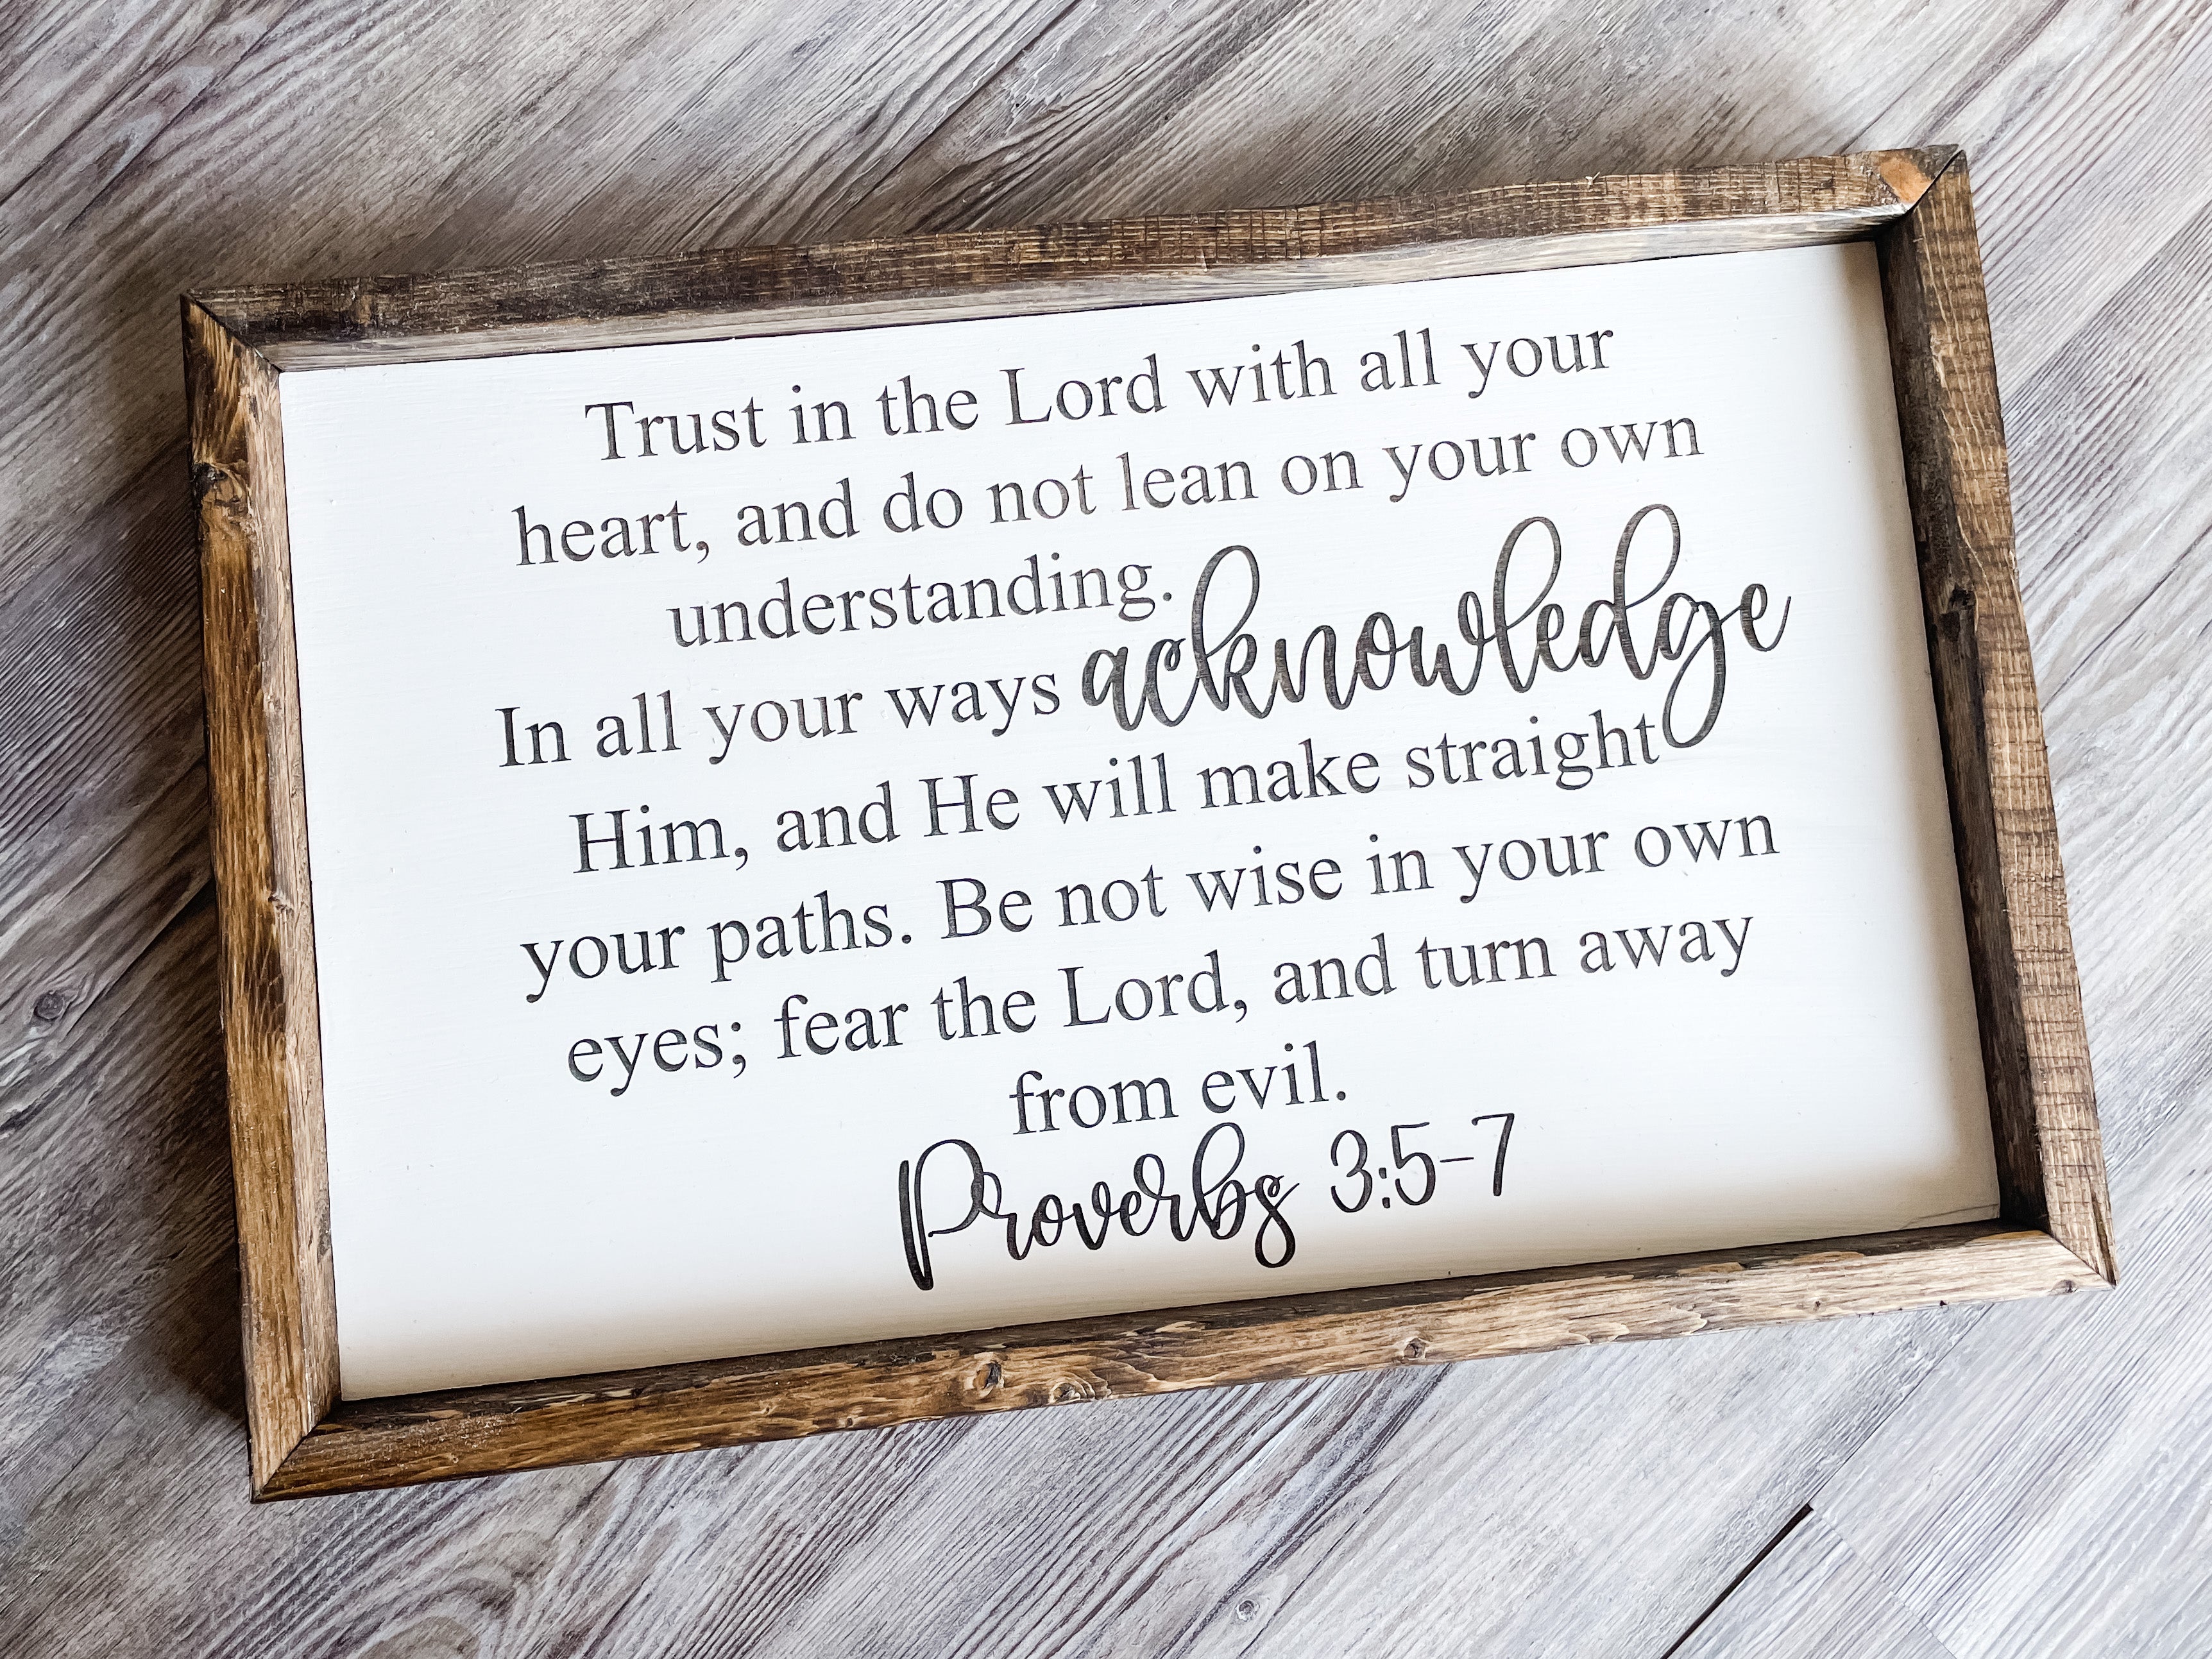 Trust in the Lord with all your
heart, and do not lean on your own
understanding.
In all your ways acknowledge
Him, and He will make straight
your paths. Be not wise in your own
eyes; fear the Lord, and turn away
from evil.
Proverbs 3:5-7